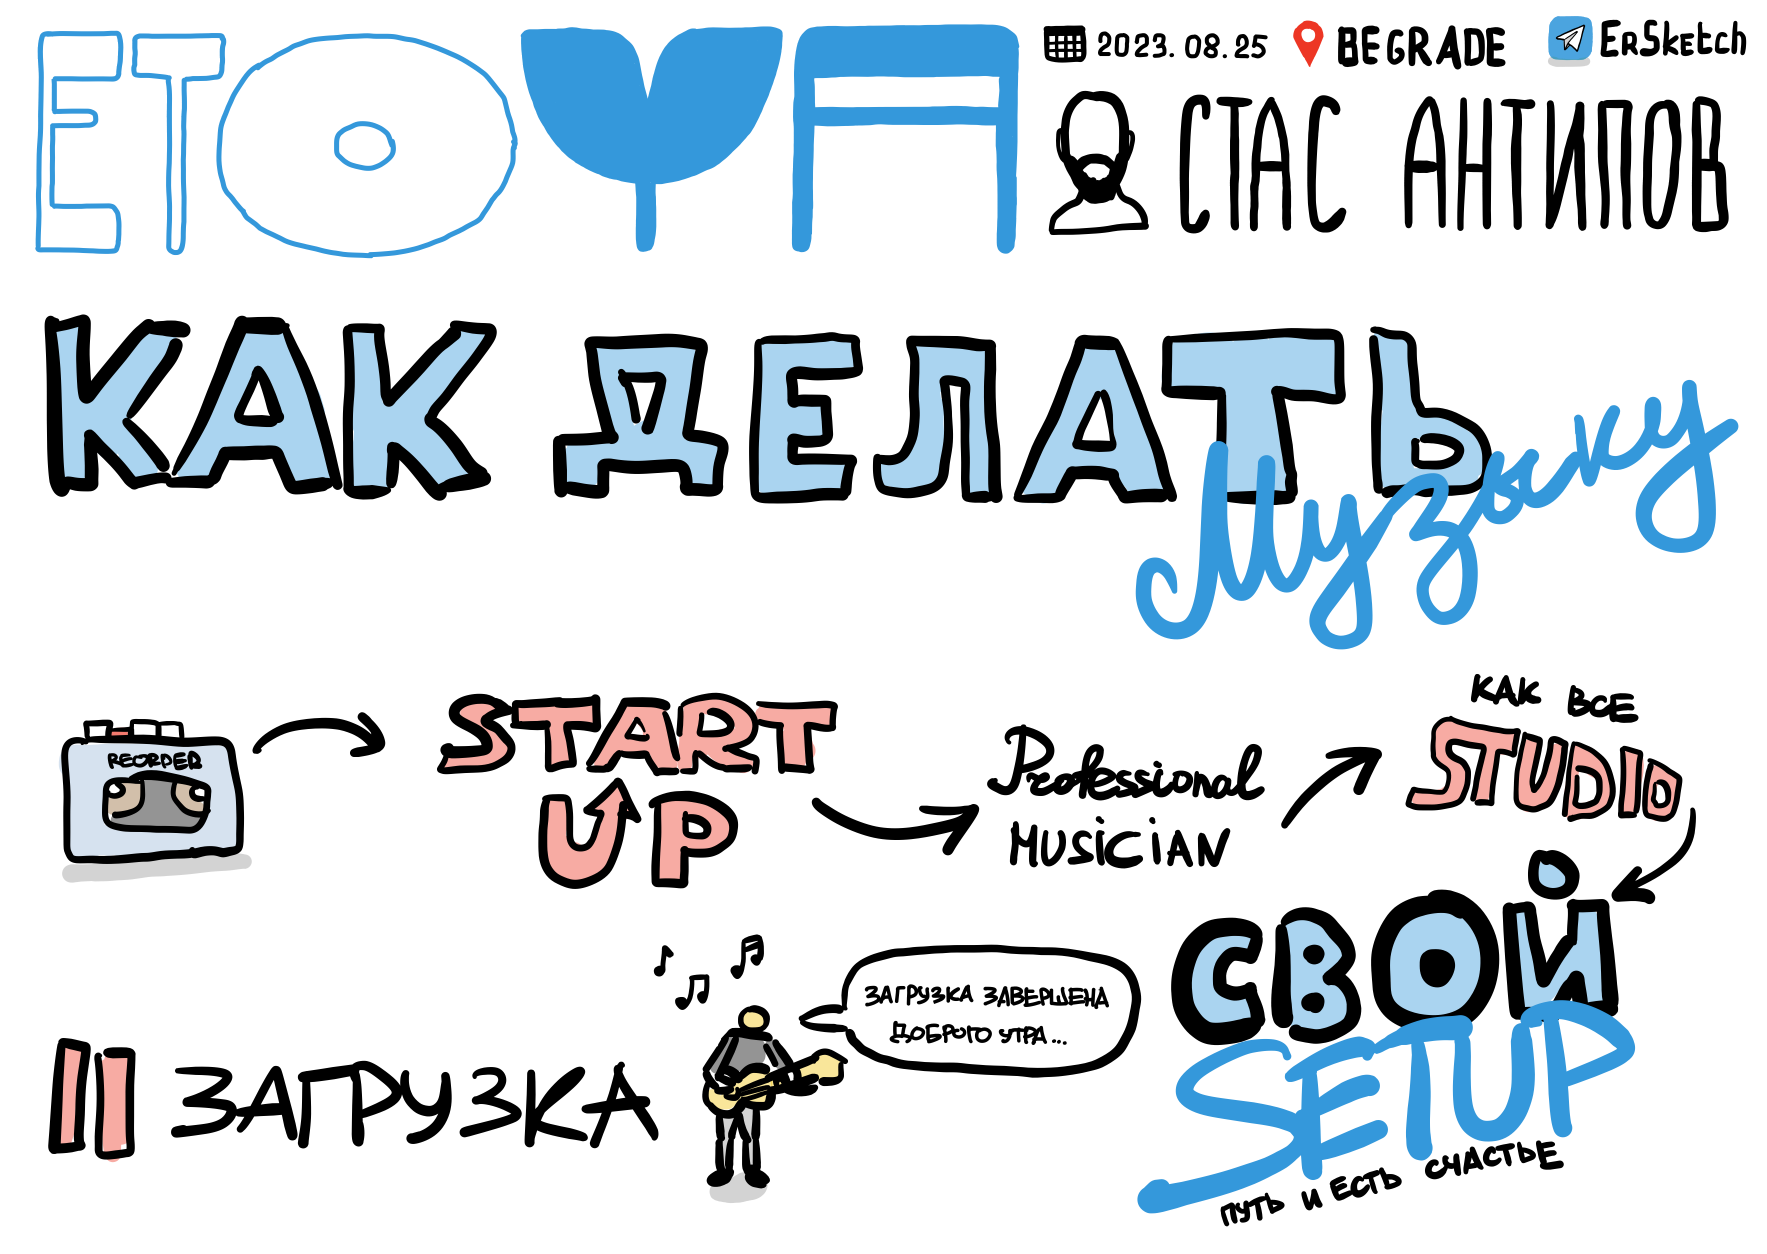 ETOYA
2023.08.25 BEGRADE ErSketch
СТАС АНТИПОВ
КАК ДЕЛАТЬ
Музыку
REORDED
START
UP
Professional
MUSiCiAN
КАК ВСЕ
STUDIO
СВОЙ
SETUP
ПУТЬ И ЕСТЬ СЧАСТЬЕ
ЗАГРУЗКА
ЗАГРУЗКА ЗАВЕРШЕНА
ДОБРОГО УТРА...